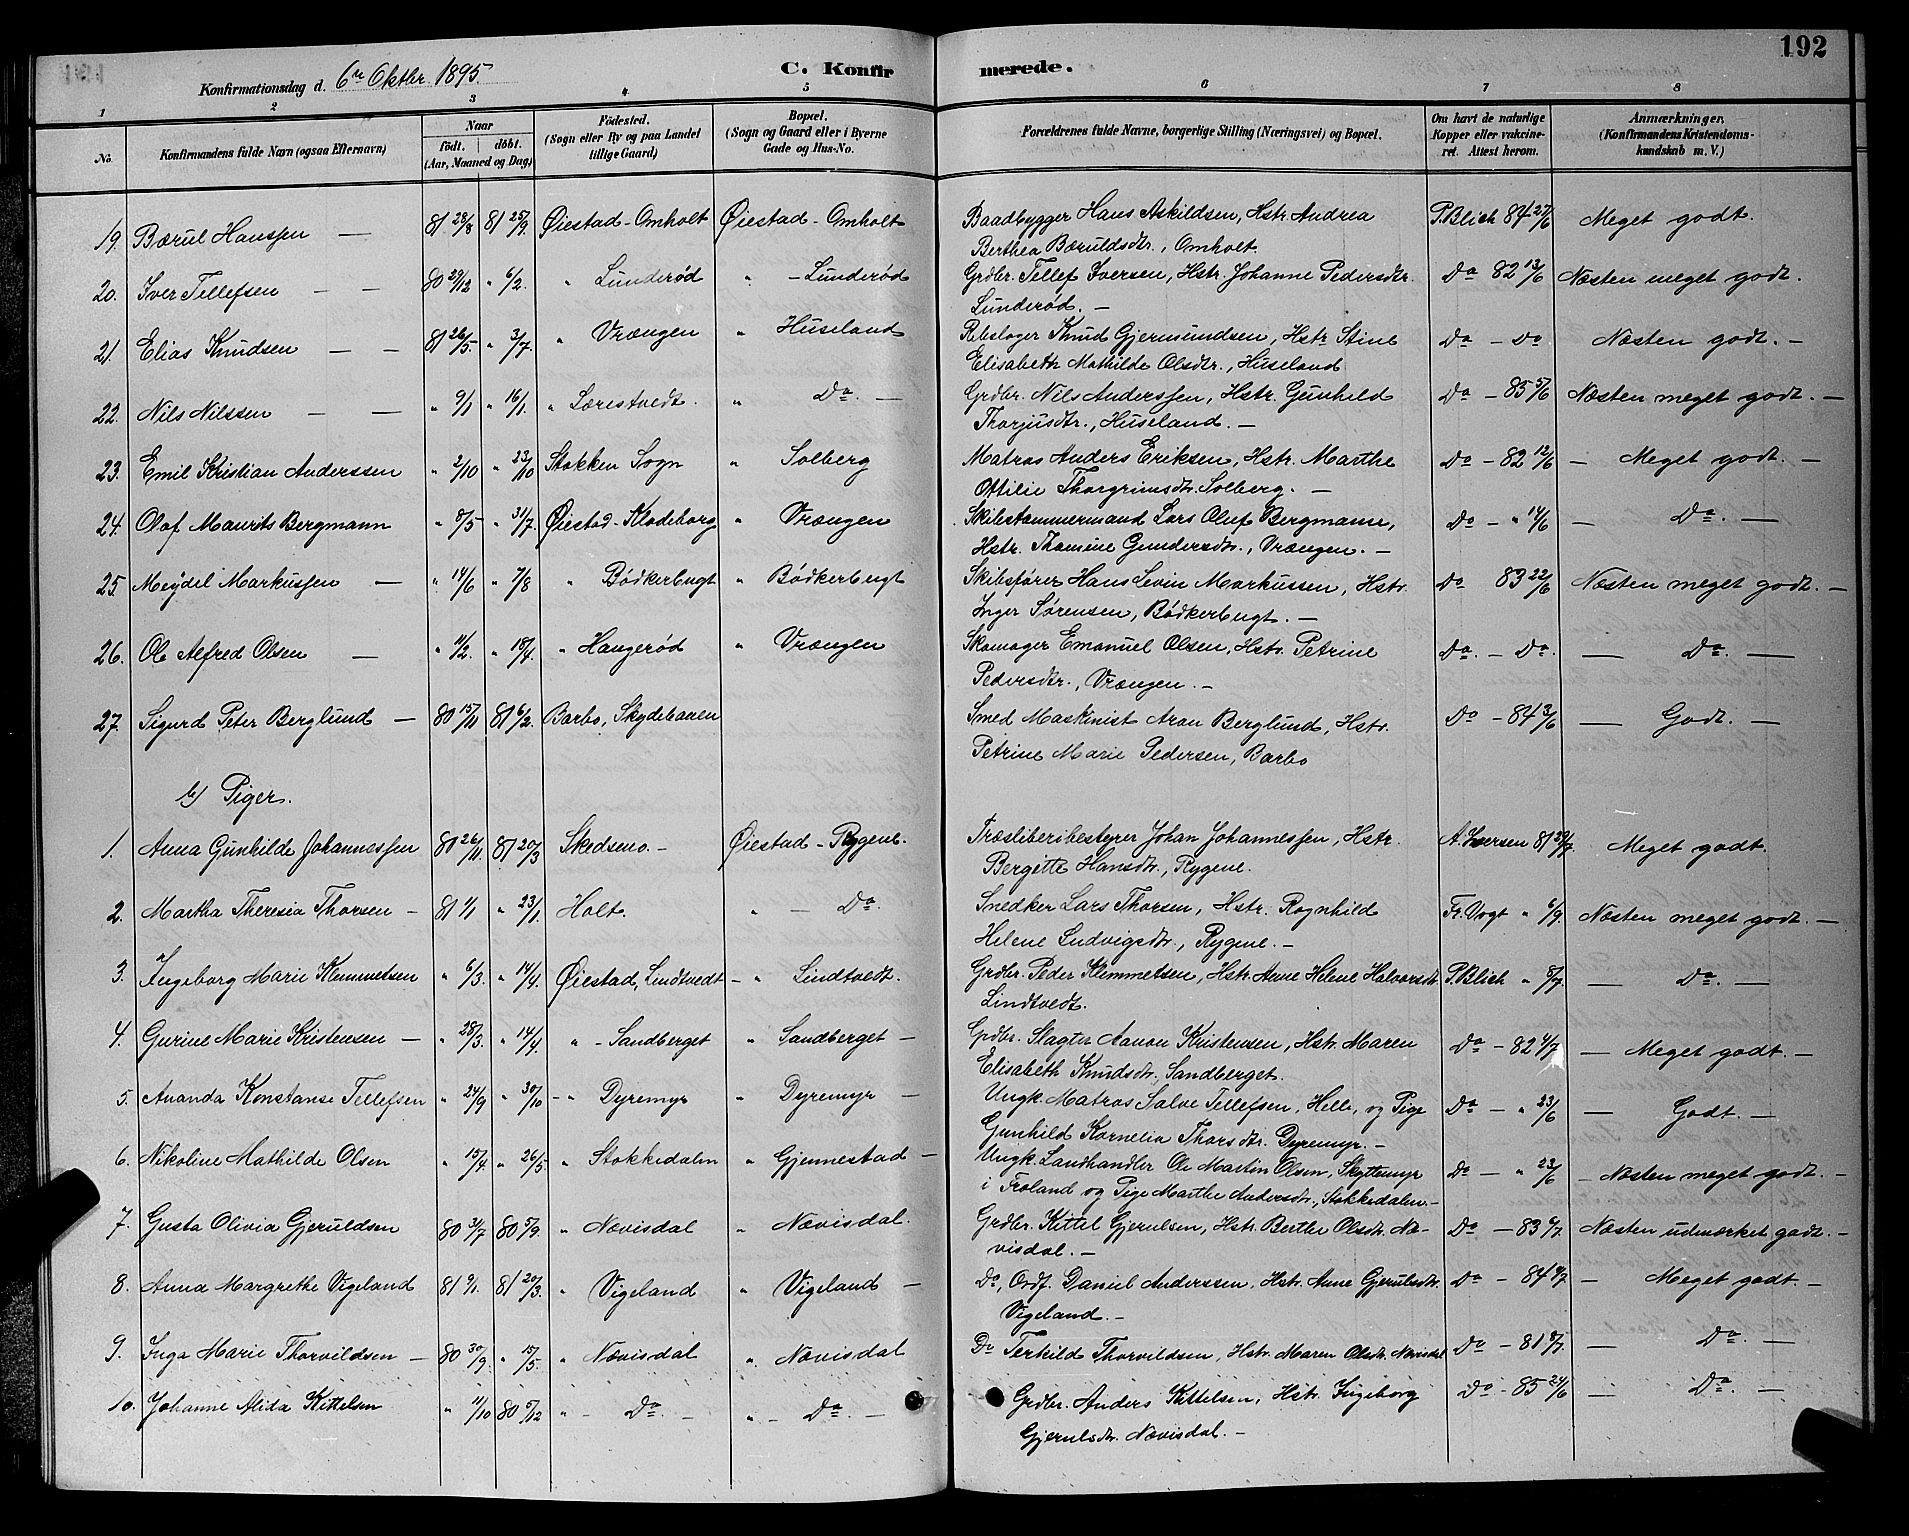 192
Konfirmationsdag d. 6te Oktbr. 1895.
C. Konfirmerede.
1 2 3 4 5 6 7 8
No. Konfirmandens fulde Navn (ogsaa Efternavn) Naar født. døbt. (Aar, Maaned og Dag) Fødested. (Sogn eller By og paa Landet tillige Gaard) Bopæl. (Sogn og Gaard eller i Byerne Gade og Hus-No. Forældrenes fulde Navne, borgerlige Stilling (Næringsvei) og Bopæl. Om havt de naturlige Kopper eller vakcineret. Attest herom. Anmærkninger, (Konfirmandens Kristendomskundskab m. V.)
19. Bærul Hanssen — 81 28/8 81 25/9. Øiestad-Omholt Øiestad-Omholt Baadbygger Hans Askildsen, Hstr. Andrea P. Blich 84 27/6 Meget godt.
Berthea Bæruldsdtr., Omholt.
20. Iver Tellefsen — — 80 29/12 " 6/2. " Lunderød " - Lunderød Grdbr. Tellef Iversen, Hstr. Johanne Pedersdtr. Do 82 13/6 Næsten meget godt.
Lunderød. —
21. Elias Knudsen — — 81 26/5. " 3/7. " Vrængen " Huseland Rebslager Knud Gjermundsen, Hstr. Stine Do - Do Næsten godt. —
Elisabeth Mathilde Olsdtr., Huseland
22. Nils Nilssen — — " 9/1 " 16/1. " Lærestvedt. " Do. — Grdbr. Nils Anderssen, Hstr. Gunhild Do - 85 5/6 Næsten meget godt. —
Thorjusdtr., Huseland. —
23. Emil Kristian Anderssen " 2/10 " 23/10 Stokken Sogn " Solberg Matros Anders Eriksen, Hstr. Marthe Do - 82 12/6 — Meget godt. —
Ottilie Thorgrimsdtr. Solberg. —
24. Olaf Maurits Bergmann " 8/5 " 31/7. Øiestad-Klodeborg " Vrængen Skibstømmermand Lars Oluf Bergmann, Do - " 14/6 — Do. —
Hstr. Thomine Gundersdtr., Vrængen. —
25. Meydel Markussen — " 14/6 " 7/8 " Bødkerbugt " Bødkerbugt Skibsfører Hans Levin Markussen, Hstr. Do 83 22/6 Næsten meget godt. —
Inger Sørensen, Bødkerbugt. —
26. Ole Alfred Olsen — " 11/2. " 18/4. " Haugerød " Vrængen Skomager Emanuel Olsen, Hstr. Petrine Do. - Do. — Do. —
Pedersdtr., Vrængen. —
27. Sigurd Peter Berglund — 80 15/11 81 6/2. Barbo, Skydebanen Smed Maskinist Aron Berglund, Hstr. Do - 84 3/6 — Godt. —
Petrine Marie Pedersen, Barbo
b) Piger.
1. Anna Gunhilde Johannessen 80 26/11. 81 20/3 Skedsmo. — Øiestad-Rygene. Træsliberibestyrer Johan Johannessen, Hstr. A. Iversen 81 29/7. Meget godt.
Bergitte Hansdtr., Rygene.
2. Martha Theresia Thorsen — 81 1/1 " 23/1. Holt. " — Do. Snedker Lars Thorsen, Hstr. Rognhild Fr. Vogt " 6/9. Næsten meget godt. —
Helene Ludvigsdtr., Rygene. —
3. Ingeborg Marie Klemmetsen " 6/3. " 14/4. Øiestad, Lindtvedt — " Lindtvedt. Grdbr. Peder Klemmetsen, Hstr. Anne Helene Halvorsdtr. P. Blich " 8/7. — Do. —
Lindtvedt.
4. Gurine Marie Kristensen — " 28/3. " 14/4. " - Sandberget " Sandberget — Grdbr. Slagter Aanon Kristensen, Hstr. Maren Do - 82 4/7 — Meget godt. —
Elisabeth Knudsdtr., Sandberget.
5. Ananda Konstanse Tellefsen " 24/9 " 30/10 - " Dyremyr " Dyremyr — Ungk. Matros Salve Tellefsen, Helle, og Pige Do - " 23/6 — Godt. —
Gunhild Kornelia Thorsdtr. Dyremyr. —
6. Nikoline Mathilde Olsen " 15/4. " 26/5. " Stokkedalen " Gjennestad — Ungk. Landhandler Ole Martin Olsen, Skyttemyr Do - " 23/6 — Næsten meget godt. —
i Froland og Pige Marthe Andersdtr., Stokkedalen. —
7. Gusta Olivia Gjeruldsen 80 3/7 80 5/9. " Nævisdal " Nævisdal. Grdbr. Kittel Gjerulsen, Hstr. Berthe Olsdtr. Næ- Do - 83 6/7. Næsten udmærket godt. —
visdal. —
8. Anna Margrethe Vigeland 81 9/1. 81 20/3. " Vigeland " Vigeland — Do, Ordf. Daniel Anderssen, Hstr. Anne Gjerulsdtr. Do - 84 — Meget godt. —
Vigeland. —
9. Inga Marie Thorvildsen — 80 30/9. " 15/5. " Nævisdal " Nævisdal Do Terkild Thorvildsen, Hstr. Maren Olsdtr. Nævisdal Do - 81 8/7. — Do. —
10. Johanne Alida Kittelsen " 11/10 80 5/12 " — Do. — " — Do. — Grdbr. Anders Kittelsen, Hstr. Ingeborg Do - 85 24/6 — Do. —
Gjerulsdtr. Nævisdal. —